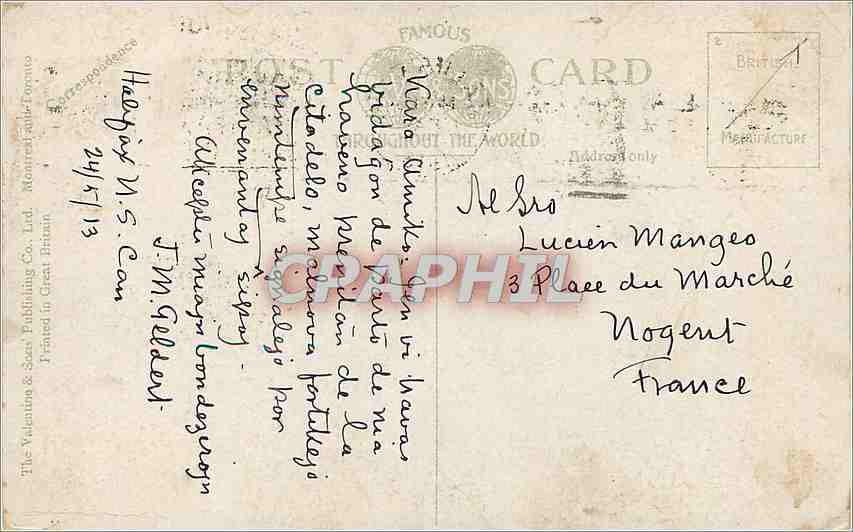 FAMOUS
POST CARD
THROUGHOUT THE WORLD
Correspondence
Address only
BRITISH
MANUFACTURE
The Valentine & Sons' Publishing Co. Ltd. Montreal and Toronto
Printed in Great Britain
Kara amiko. Jen vi havas
vidaĵon de parto de nia
haveno prenitan de la
citadelo, malnova fortikejo
nuntempe signalejo por
envenantaj ŝipoj.
Akceptu miajn bondezirojn
J. M. Geldert
Halifax N.S. Can
24/5/13
Al Sro
Lucien Mangeo
3 Place du Marché
Nogent
France
CPAPHIL